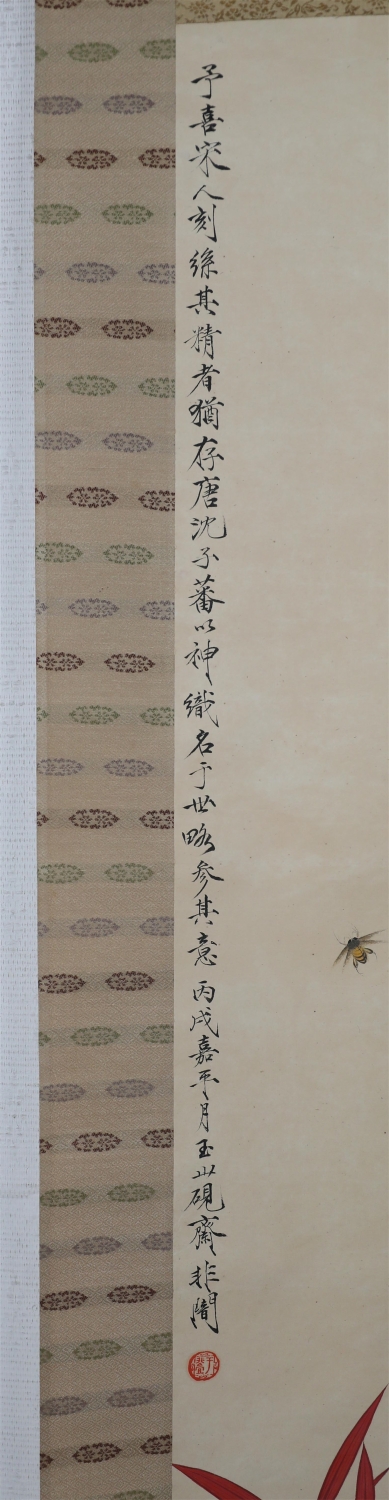 予喜宋人刻絲其精者猶存唐沈子蕃以神織名于世略參其意丙戌嘉平月玉山硯齋非闇